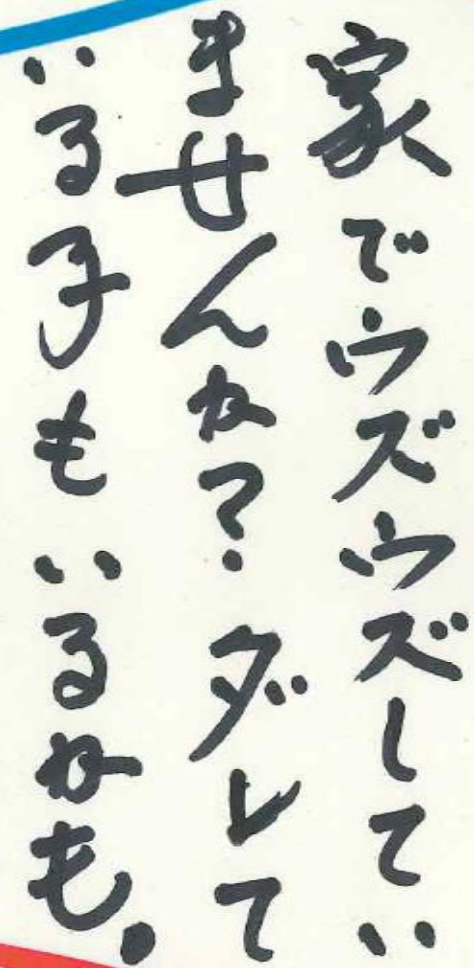 家でウズウズしてい
ませんか？ ダレて
いる子もいるかも。